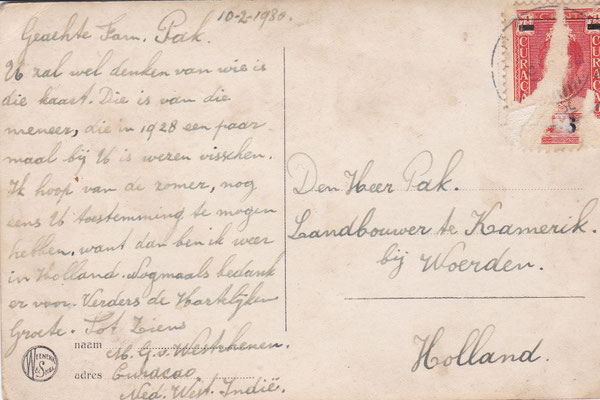 10-2-1930.
Geachte Fam. Pak.
U zal wel denken van wie is
die kaart. Die is van die
meneer, die in 1928 een paar
maal bij U is wezen visschen.
Ik hoop van de zomer, nog
eens U toestemming te mogen
hebben, want dan ben ik weer
in Holland. Nogmaals bedank
er voor. Verders de Hartelijken
Groete. Tot Ziens
naam M. G. v. Westrhenen.
adres Curacao
Ned. West. Indië.
CURAÇAO
Den Heer Pak.
Landbouwer te Kamerik.
bij Woerden.
Holland.